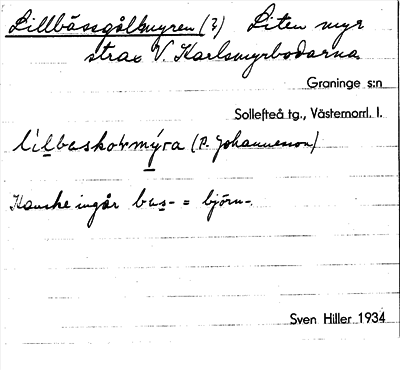 Lillbåssgålkmyren (?) Liten myr
strax V. Karlsmyrbodarna
Graninge s:n
Sollefteå tg., Västernorrl. l.
(P. Johannesson)
Kanske ingår bas- = björn-.
Sven Hiller 1934